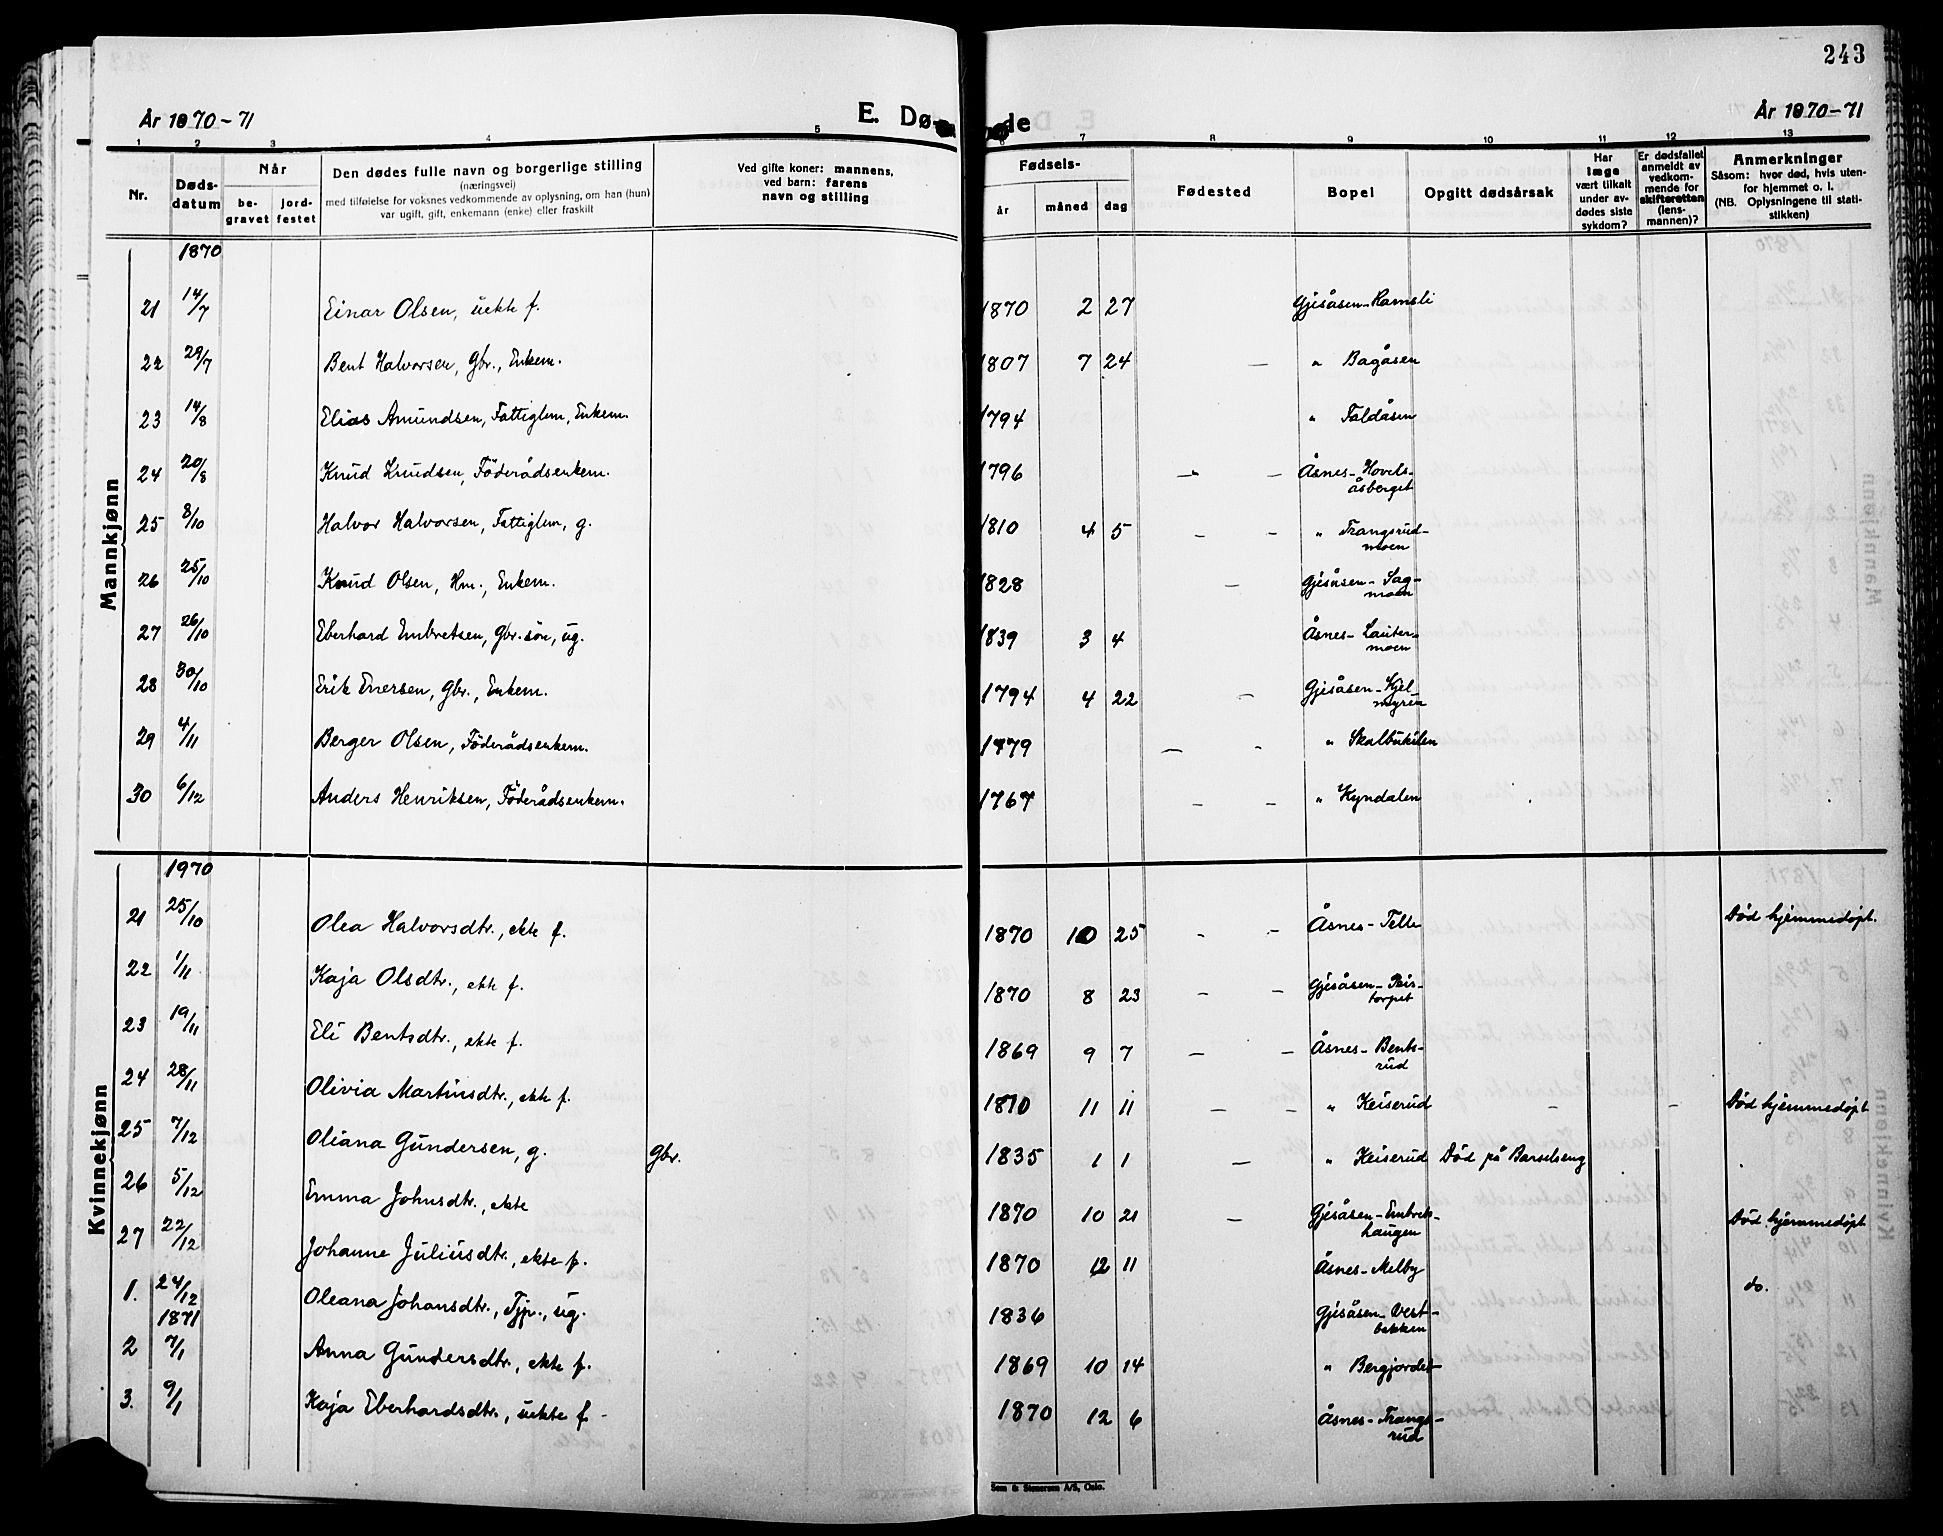 243
År 1870-71
E. Dø-
de
År 1870-71
1 2 3 4 5 6 7 8 9 10 11 12 13
Nr.
Døds-
datum
Når
be-
gravet
jord-
festet
Den dødes fulle navn og borgerlige stilling
(næringsvei)
med tilføielse for voksnes vedkommende av oplysning, om han (hun)
var ugift, gift, enkemann (enke) eller fraskilt
Ved gifte koner: mannens,
ved barn: farens
navn og stilling
Fødsels-
år måned dag
Fødested
Bopel
Opgitt dødsårsak
Har
læge
vært tilkalt
under av-
dødes siste
sykdom?
Er dødsfallet
anmeldt av
vedkom-
mende for
skifteretten
(lens-
mannen)?
Anmerkninger
Såsom: hvor død, hvis uten-
for hjemmet o. l.
(NB. Oplysningene til stati-
stikken)
Mannkjønn
1870
21 14/7 Einar Olsen, uekte f. 1870 2 27 Gjesåsen-Ramsli
22 29/7 Bent Halvorsen, Gbr., Enkem. 1807 7 24 — " Bagåsen
23 14/8 Elias Amundsen, Fattiglem, Enkem. 1794 " Faldåsen
24 20/8 Knud Knudsen, Föderådsenkem. 1796 — — Åsnes-Hovels-
åsberget
25 8/10 Halvor Halvorsen, Fattiglem, g. 1810 4 5 - - " Trangsrud-
moen
26 25/10 Knud Olsen, Hm., Enkem. 1828 — Gjesåsen-Sag-
moen
27 26/10 Eberhard Embretsen, Gbr.sön, ug. 1839 3 4 Åsnes-Lauter-
moen
28 30/10 Erik Enersen, Gbr., Enkem. 1794 4 22 — Gjesåsen-Kjel-
myren
29 4/11 Berger Olsen, Föderådsenkem. 1779 — - " Skalbukilen
30 6/12 Anders Henriksen, Föderådsenkem. 1767 - - " Kyndalen
Kvinnekjønn
1970
21 25/10 Olea Halvorsdtr., ekte f. 1870 10 25 - - Åsnes-Telte Död hjemmedöpt.
22 1/11 Kaja Olsdtr., ekte f. 1870 8 23 - - Gjesåsen-Peis-
torpet
23 19/11 Eli Bentsdtr., ekte f. 1869 9 7 — — Åsnes-Bents-
rud
24 28/11 Olivia Martinsdtr., ekte f. 1870 11 11 - - " Keiserud - - Död hjemmedöpt
25 7/12 Oliana Gundersen, g. Gbr. 1835 1 1 — " Keiserud Död på Barselseng
26 5/12 Emma Johnsdtr., ekte 1870 10 21 — Gjesåsen-Embrets-
haugen Död hjemmedöpt
27 22/12 Johanne Juliusdtr., ekte f. 1870 12 11 Åsnes-Melby do.
1. 24/12 Oleana Johansdtr., Tjp., ug. 1836 Gjesåsen-Vest-
bakken
1871
2 7/1 Anna Gundersdtr., ekte f. 1869 10 14 " Bergjordet
3. 9/1 Kaja Eberhardsdtr., uekte f. 1870 12 6 Åsnes-Trangs-
rud
Sem & Stenersen A/S, Oslo.